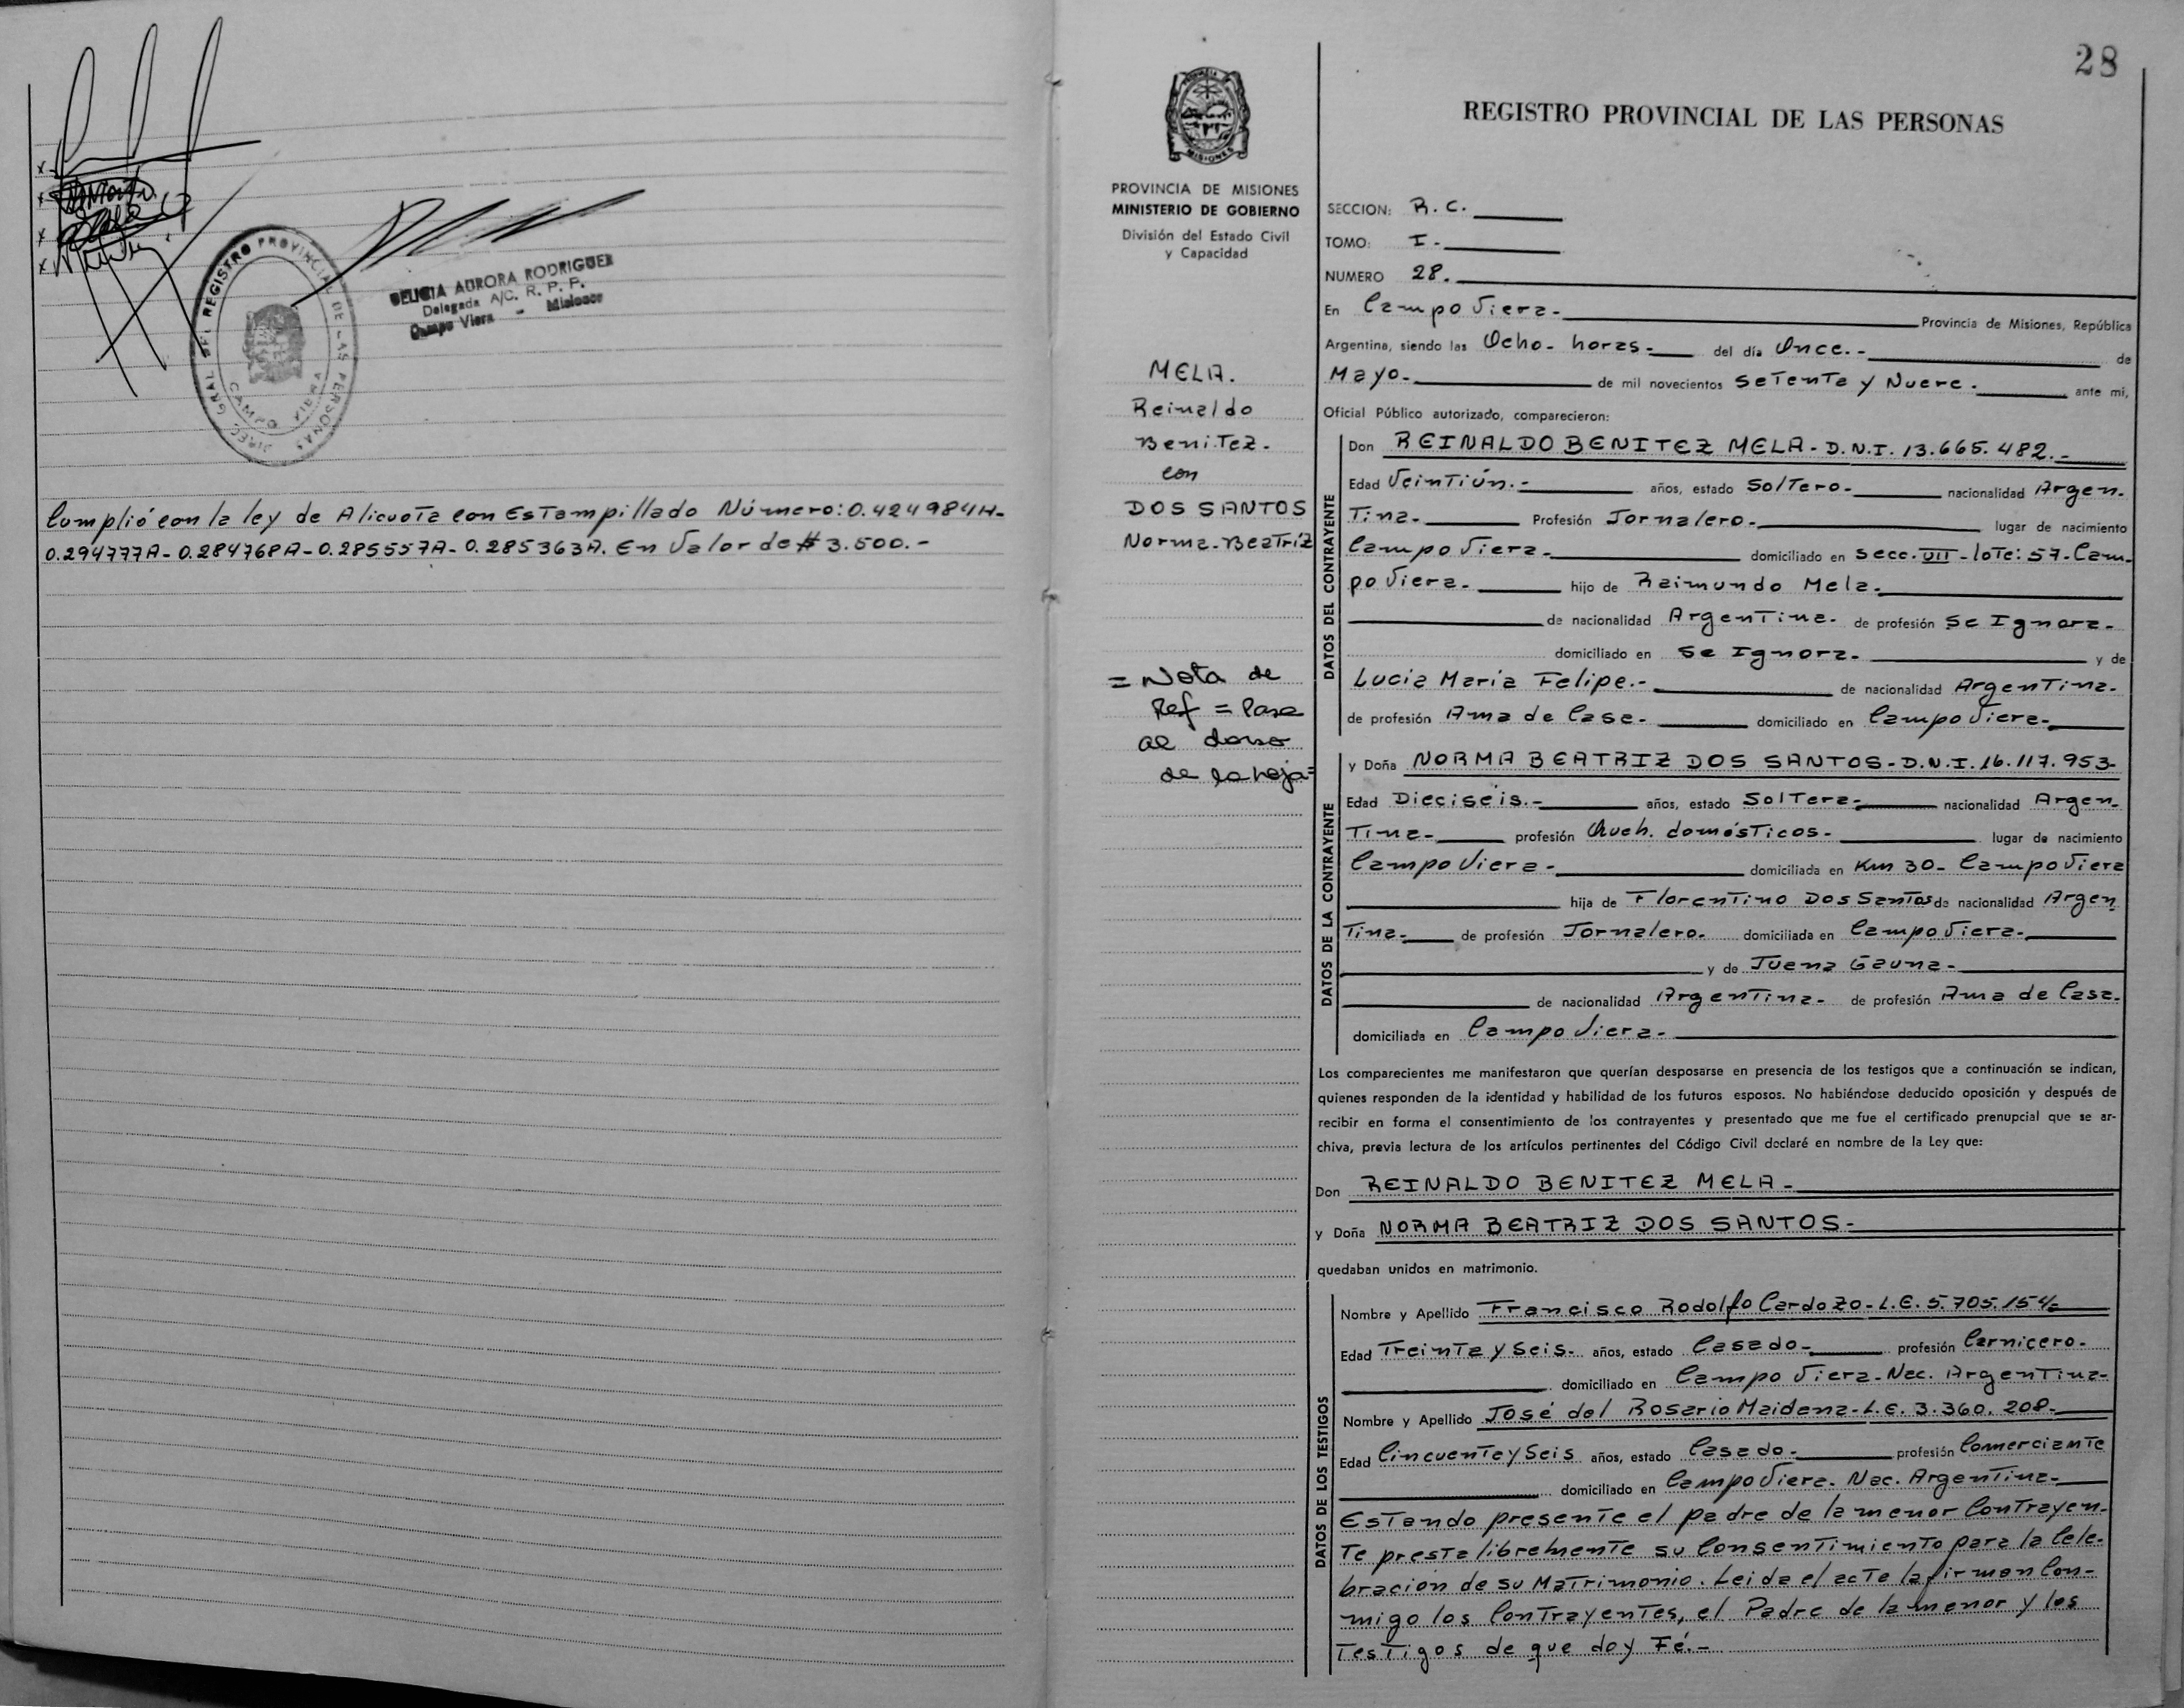 DIREC. GRAL. DEL REGISTRO PROVINCIAL DE LAS PERSONAS
CAMPO VIERA
DELICIA AURORA RODRIGUEZ
Delegada A/C. R. P. P.
Campo Viera - Misiones
Cumplió con la ley de Alicuota con Estampillado Número: 0.424984H-
0.294777A- 0.284768A- 0.285557A- 0.285363A. En Valor de $ 3.500.-
28
PROVINCIA DE MISIONES
MINISTERIO DE GOBIERNO
División del Estado Civil
y Capacidad
MELA.
Reinaldo
Benitez-
con
DOS SANTOS
Norma-Beatriz
= Nota de
Ref = Pasa
al dorso
de la hoja=
REGISTRO PROVINCIAL DE LAS PERSONAS
SECCION: R. C.
TOMO: I-
NUMERO 28.
En Campo Viera- Provincia de Misiones, República
Argentina, siendo las Ocho- horas- del día Once.- de
Mayo- de mil novecientos setenta y Nueve. ante mi,
Oficial Público autorizado, comparecieron:
DATOS DEL CONTRAYENTE
Don REINALDO BENITEZ MELA- D.N.I. 13.665.482.-
Edad Veintiún.- años, estado Soltero- nacionalidad Argen-
tina- Profesión Jornalero- lugar de nacimiento
Campo Viera- domiciliado en secc. VII - lote: 57- Cam-
po Viera- hijo de Raimundo Mela-
de nacionalidad Argentina- de profesión Se Ignora-
domiciliado en Se Ignora- y de
Lucia Maria Felipe.- de nacionalidad Argentina-
de profesión Ama de Casa- domiciliado en Campo Viera-
DATOS DE LA CONTRAYENTE
y Doña NORMA BEATRIZ DOS SANTOS- D.N.I. 16.117.953-
Edad Dieciseis.- años, estado Soltera- nacionalidad Argen-
tina- profesión Queh. domésticos- lugar de nacimiento
Campo Viera- domiciliada en Km 30- Campo Viera
hija de Florentino Dos Santos de nacionalidad Argen
tina- de profesión Jornalero- domiciliada en Campo Viera-
y de Juana Gauna-
de nacionalidad Argentina- de profesión Ama de Casa-
domiciliada en Campo Viera-
Los comparecientes me manifestaron que querían desposarse en presencia de los testigos que a continuación se indican,
quienes responden de la identidad y habilidad de los futuros esposos. No habiéndose deducido oposición y después de
recibir en forma el consentimiento de los contrayentes y presentado que me fue el certificado prenupcial que se ar-
chiva, previa lectura de los artículos pertinentes del Código Civil declaré en nombre de la Ley que:
Don REINALDO BENITEZ MELA-
y Doña NORMA BEATRIZ DOS SANTOS-
quedaban unidos en matrimonio.
DATOS DE LOS TESTIGOS
Nombre y Apellido Francisco Rodolfo Cardozo- L.E. 5.705.154-
Edad Treinta y Seis- años, estado Casado- profesión Carnicero-
domiciliado en Campo Viera- Nac. Argentina-
Nombre y Apellido José del Rosario Maidana- L.E. 3.360.208-
Edad Cincuenta y Seis años, estado Casado- profesión Comerciante
domiciliado en Campo Viera- Nac. Argentina-
Estando presente el padre de la menor Contrayen-
te presta libremente su Consentimiento para la Cele-
bracion de su Matrimonio. Leida el acta la firman Con-
migo los Contrayentes, el Padre de la menor y los
Testigos de que doy Fé.-